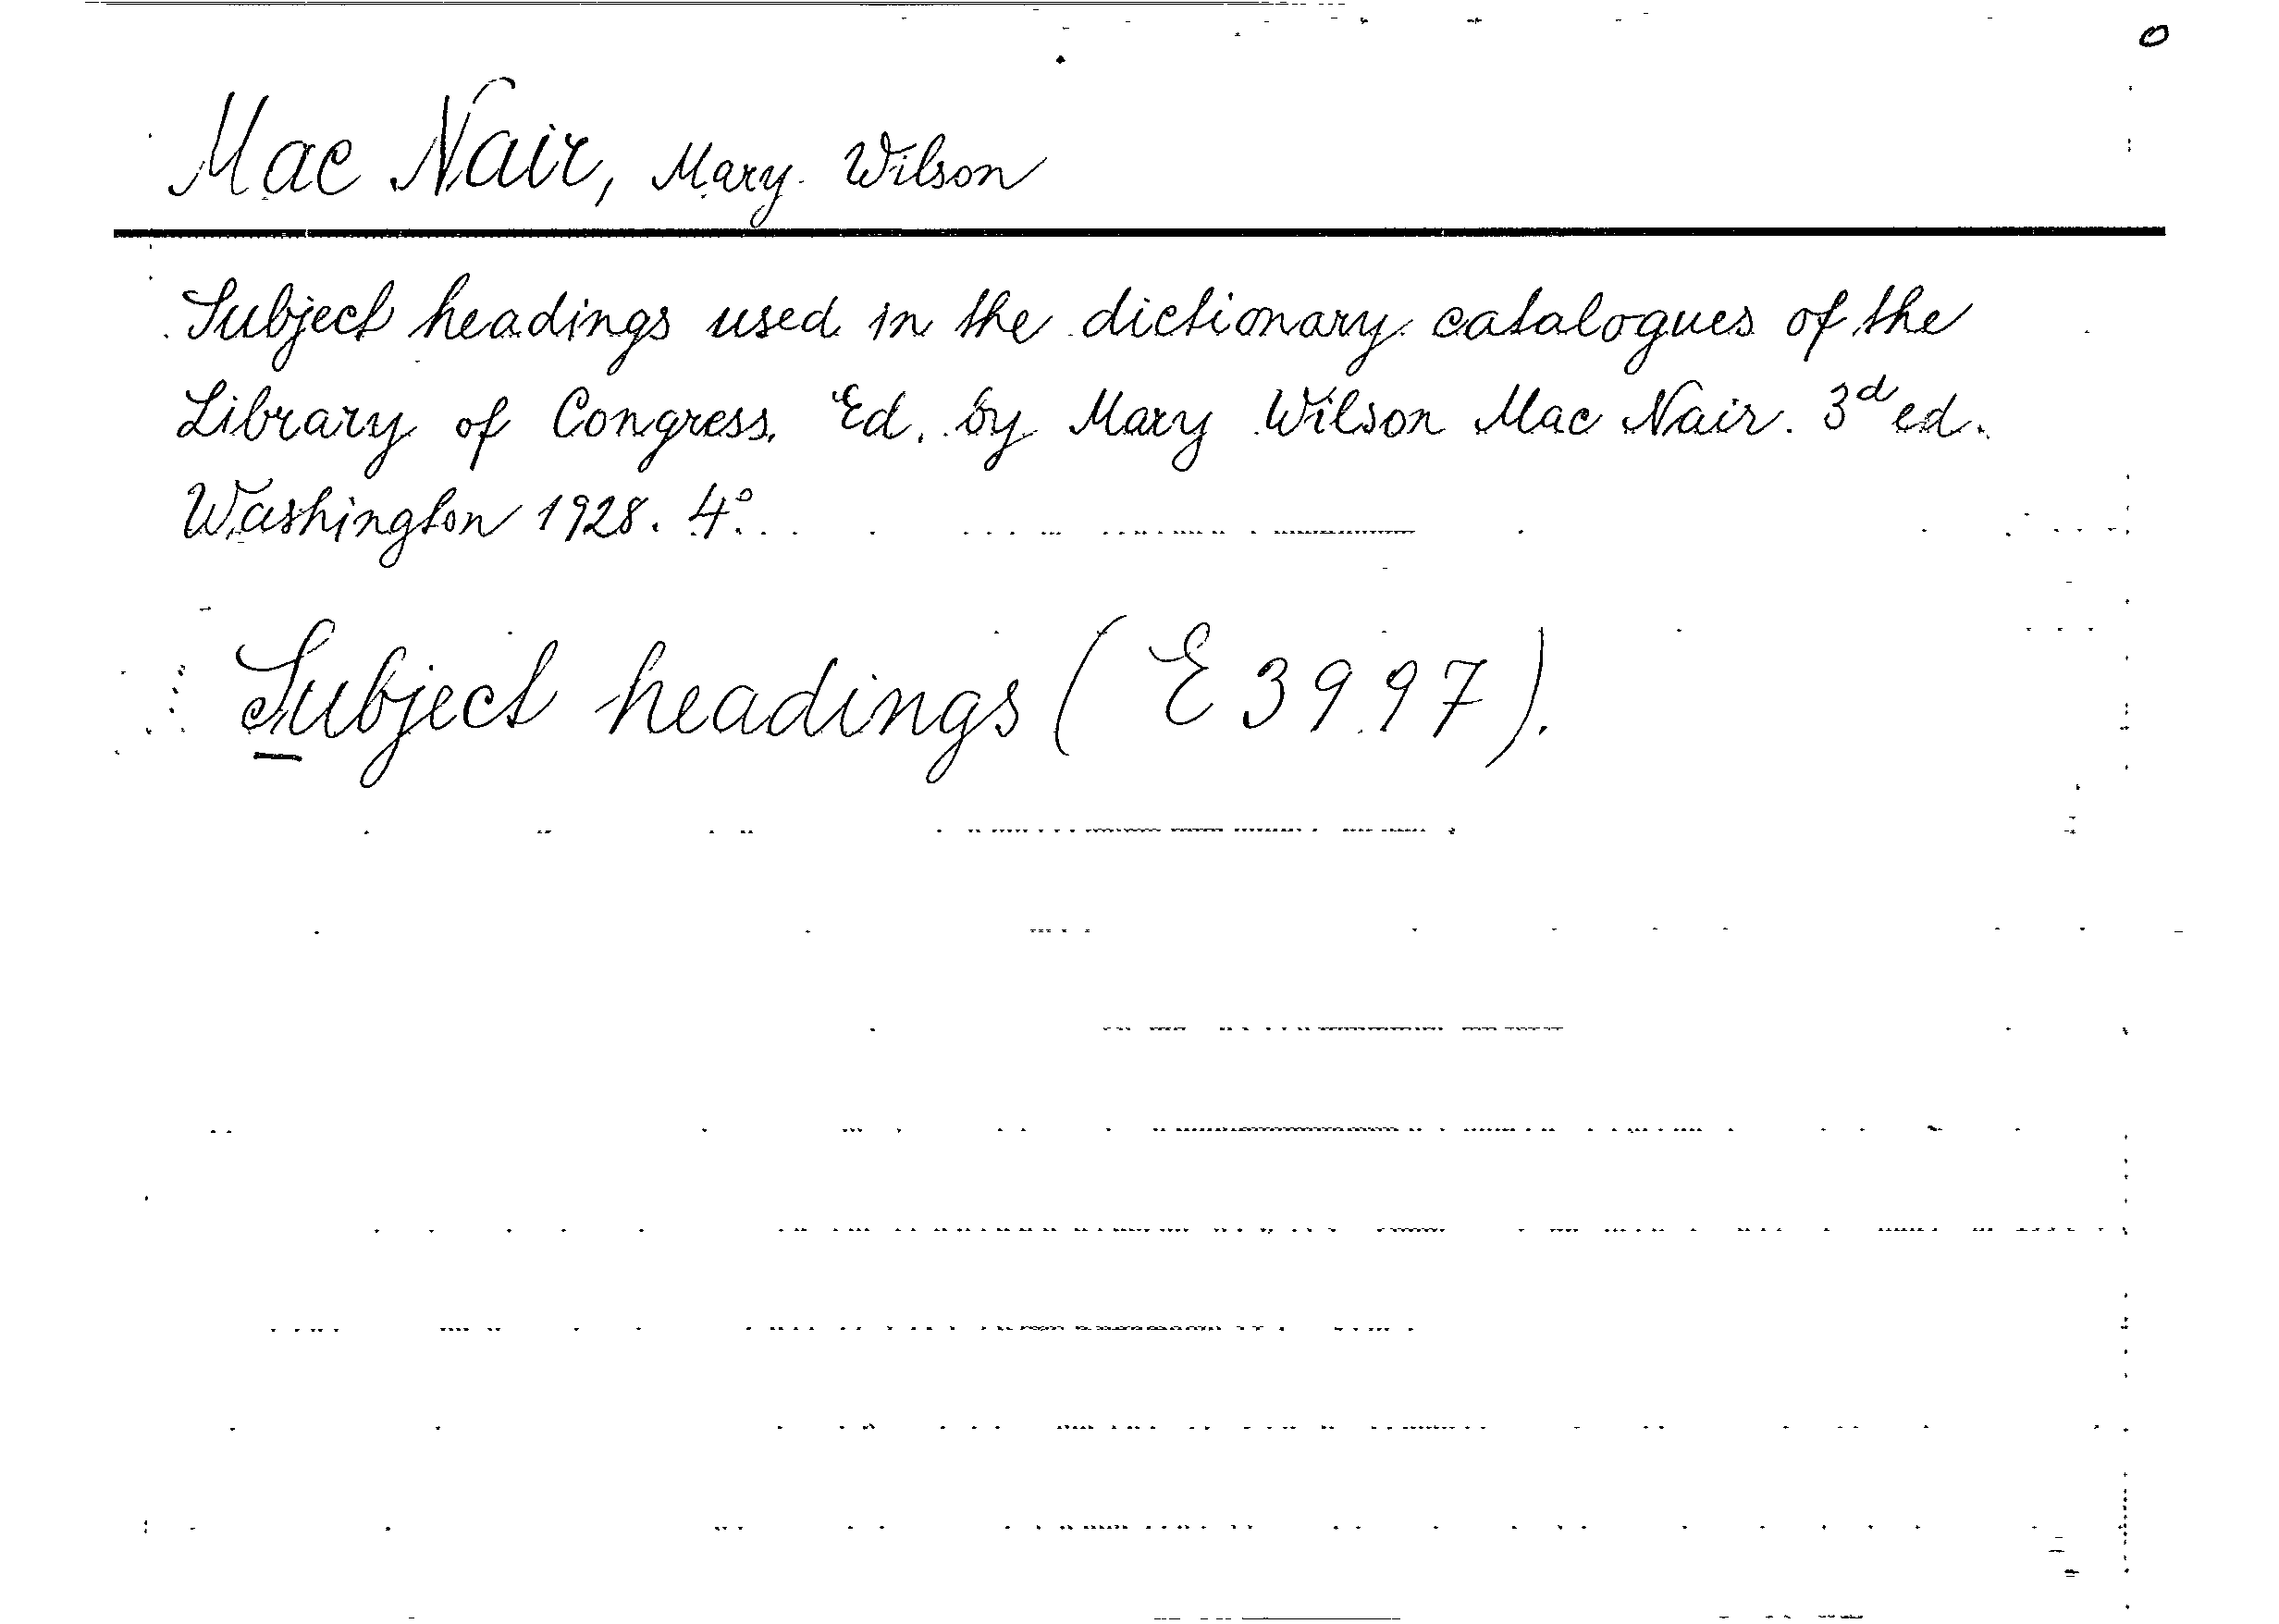 Mac Nair, Mary Wilson
Subject headings used in the dictionary catalogues of the
Library of Congress. Ed. by Mary Wilson Mac Nair. 3d ed.
Washington 1928. 4°.
Subject headings (E 3997).